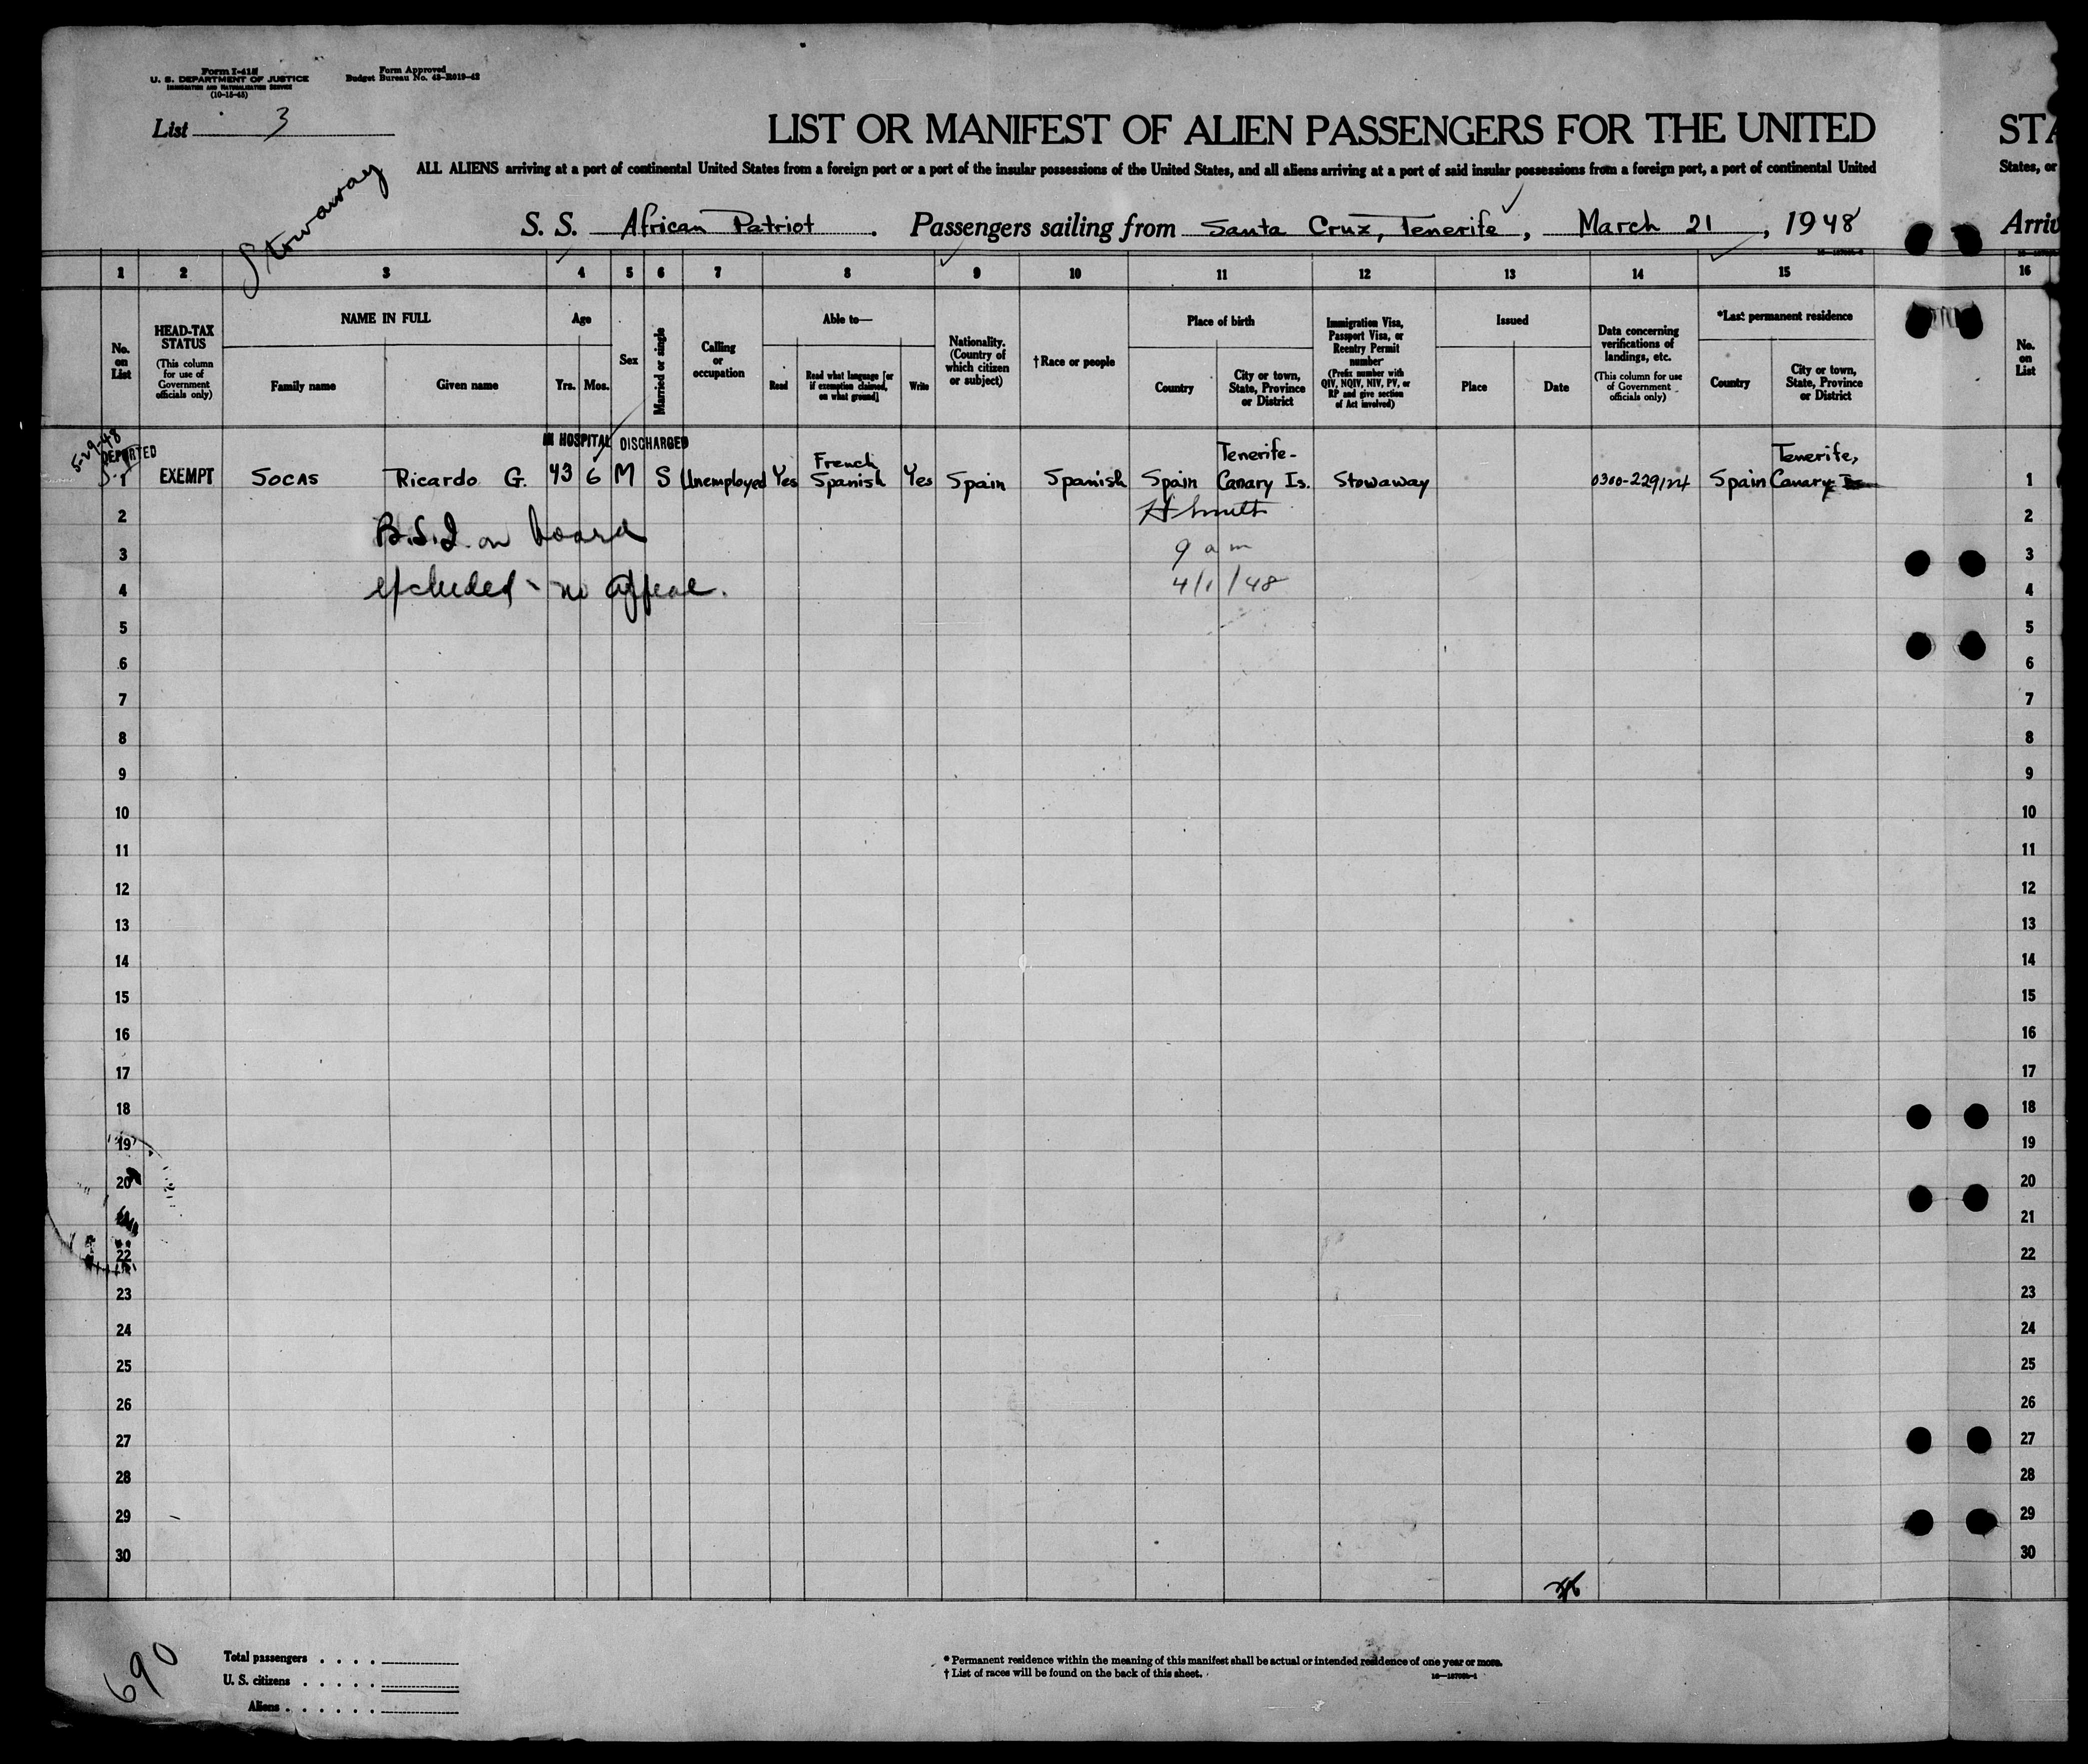 Form I-415
U. S. DEPARTMENT OF JUSTICE
IMMIGRATION AND NATURALIZATION SERVICE
(10-15-45)
Form Approved
Budget Bureau No. 43-R019-42
List 3
Stowaway
LIST OR MANIFEST OF ALIEN PASSENGERS FOR THE UNITED
STA
ALL ALIENS arriving at a port of continental United States from a foreign port or a port of the insular possessions of the United States, and all aliens arriving at a port of said insular possessions from a foreign port, a port of continental United
States, or
S. S. African Patriot . Passengers sailing from Santa Cruz, Tenerife, March 21, 1948
Arriv
1 2 3 4 5 6 7 8 9 10 11 12 13 14 15 16
No. on List
HEAD-TAX STATUS
(This column for use of Government officials only)
NAME IN FULL
Family name
Given name
Age
Yrs. Mos.
Sex
Married or single
Calling or occupation
Able to—
Read
Read what language [or if exemption claimed, on what ground]
Write
Nationality. (Country of which citizen or subject)
†Race or people
Place of birth
Country
City or town, State, Province or District
Immigration Visa, Passport Visa, or Reentry Permit number
(Prefix number with QIV, NQIV, NIV, PV, or RP and give section of Act involved)
Issued
Place
Date
Data concerning verifications of landings, etc.
(This column for use of Government officials only)
*Last permanent residence
Country
City or town, State, Province or District
No. on List
5-29-48
DEPORTED
IN HOSPITAL DISCHARGED
1 EXEMPT Socas Ricardo G. 43 6 M S Unemployed Yes French Spanish Yes Spain Spanish Spain Tenerife- Canary Is. Stowaway 0300-229124 Spain Tenerife, Canary Is 1
2 2
B.S.I. on board
3 9 am 3
excluded - no appeal.
4 4/1/48 4
5 5
6 6
7 7
8 8
9 9
10 10
11 11
12 12
13 13
14 14
15 15
16 16
17 17
18 18
19 19
20 20
21
22 22
23 23
24 24
25 25
26 26
27 27
28 28
29 29
30 30
690
Total passengers . . . .
U. S. citizens . . . . .
Aliens . . . . . .
* Permanent residence within the meaning of this manifest shall be actual or intended residence of one year or more.
† List of races will be found on the back of this sheet.